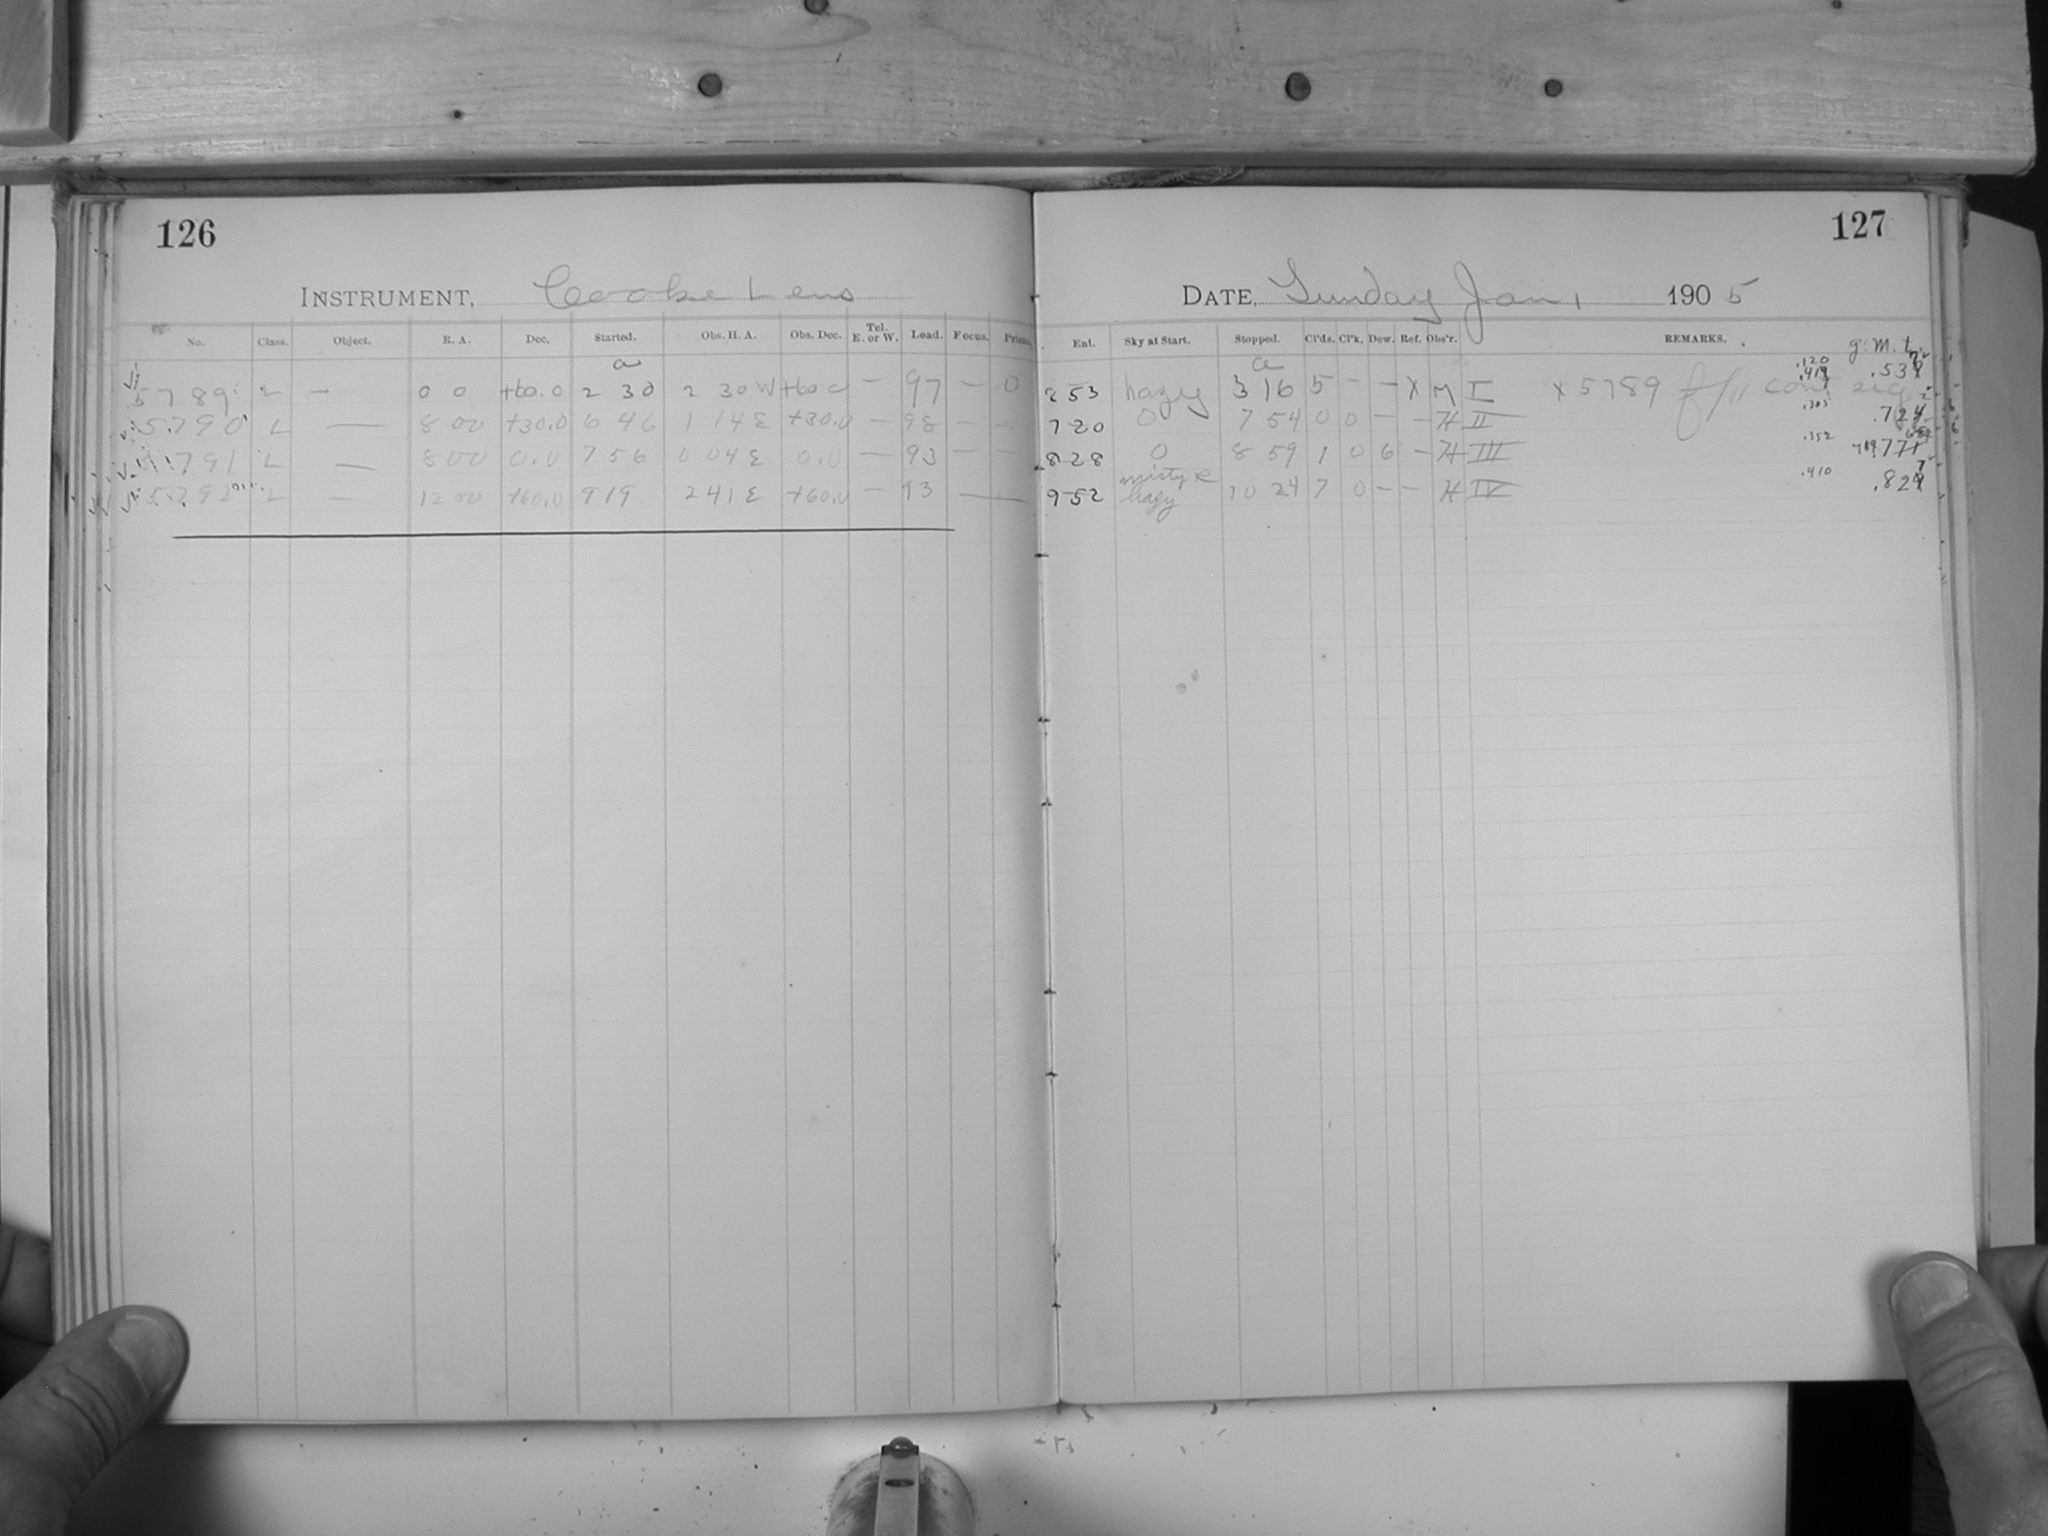 126
INSTRUMENT, Cooke Lens
No. Class. Object. R. A. Dec. Started. Obs. H. A. Obs. Dec. Tel. E. or W. Load. Focus. Prism.
a
5789 L — 0 0 +60.0 2 30 2 30 W +60.0 — 97 — 0
5790 L — 8 00 +30.0 6 46 1 14 E +30.0 — 98 — —
5791 L — 8 00 0.0 7 56 0 04 E 0.0 — 93 — —
5792 L — 12 00 +60.0 9 19 2 41 E +60.0 — 93 — —
127
DATE, Sunday Jan 1 1905
Ent. Sky at Start. Stopped. Cl'ds. Cl'k. Dew. Ref. Obs'r. REMARKS. g. m. t.
a
2 53 hazy 3 16 5 — — X M I x 5789 f/11 .120
7 20 0 7 54 0 0 — — H II .305 .724
8 28 0 8 59 1 0 6 — H III .352
9 52 misty & hazy 10 24 7 0 — — H IV .410